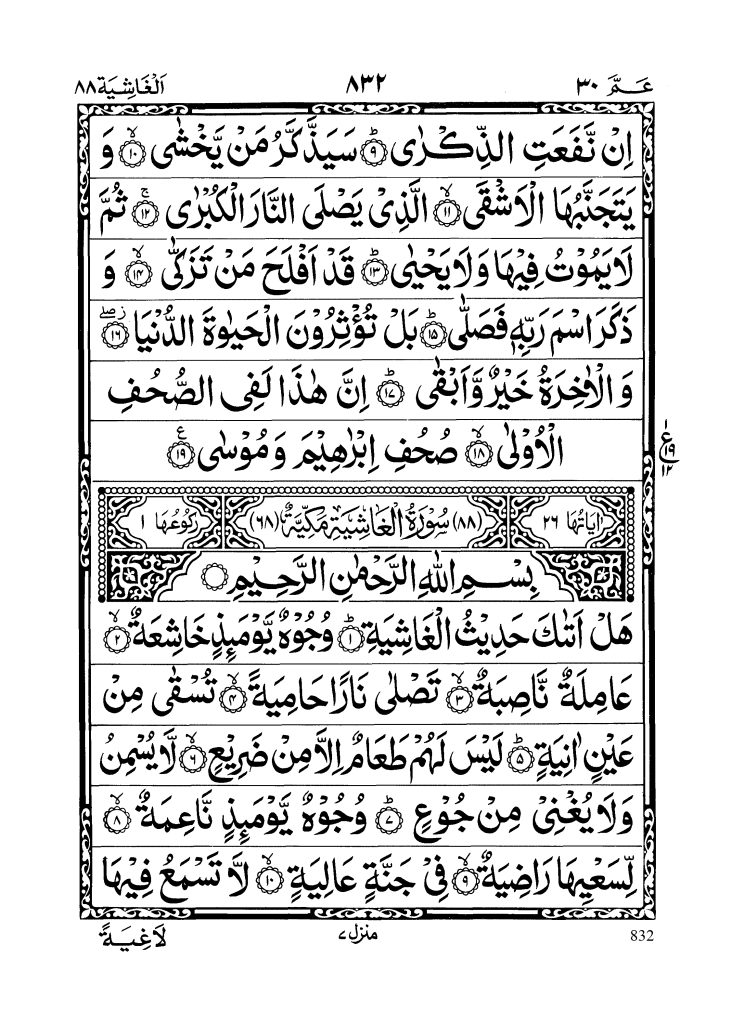 عَمَّ ۳۰ ۸۳۲ اَلْغَاشِيَة ۸۸
اِنْ نَّفَعَتِ الذِّكْرٰى ؕ‏﴿۹﴾ سَيَذَّكَّرُ مَنْ يَّخْشٰى ۙ‏﴿۱۰﴾ وَ
يَتَجَنَّبُهَا الْاَشْقَى ۙ‏﴿۱۱﴾ الَّذِىْ يَصْلَى النَّارَ الْكُبْرٰى ۚ‏﴿۱۲﴾ ثُمَّ
لَا يَمُوْتُ فِيْهَا وَلَا يَحْيٰى ؕ‏﴿۱۳﴾ قَدْ اَفْلَحَ مَنْ تَزَكّٰى ۙ‏﴿۱۴﴾ وَ
ذَكَرَ اسْمَ رَبِّهٖ فَصَلّٰى ؕ‏﴿۱۵﴾ بَلْ تُؤْثِرُوْنَ الْحَيٰوةَ الدُّنْيَا ‏﴿۱۶﴾
وَالْاٰخِرَةُ خَيْرٌ وَّاَبْقٰى ؕ‏﴿۱۷﴾ اِنَّ هٰذَا لَفِى الصُّحُفِ
الْاُوْلٰى ۙ‏﴿۱۸﴾ صُحُفِ اِبْرٰهِيْمَ وَمُوْسٰى ‏﴿۱۹﴾
۱
ع
۱۹
۱۲
اٰيَاتُهَا ۲۶ (۸۸) سُوْرَةُ الْغَاشِيَةِ مَكِّيَّةٌ (۶۸) رُكُوْعُهَا ۱
بِسْمِ اللّٰهِ الرَّحْمٰنِ الرَّحِيْمِ
هَلْ اَتٰىكَ حَدِيْثُ الْغَاشِيَةِ ؕ‏﴿۱﴾ وُجُوْهٌ يَّوْمَئِذٍ خَاشِعَةٌ ۙ‏﴿۲﴾
عَامِلَةٌ نَّاصِبَةٌ ۙ‏﴿۳﴾ تَصْلٰى نَارًا حَامِيَةً ۙ‏﴿۴﴾ تُسْقٰى مِنْ
عَيْنٍ اٰنِيَةٍ ؕ‏﴿۵﴾ لَيْسَ لَهُمْ طَعَامٌ اِلَّا مِنْ ضَرِيْعٍ ۙ‏﴿۶﴾ لَّا يُسْمِنُ
وَلَا يُغْنِىْ مِنْ جُوْعٍ ؕ‏﴿۷﴾ وُجُوْهٌ يَّوْمَئِذٍ نَّاعِمَةٌ ۙ‏﴿۸﴾
لِّسَعْيِهَا رَاضِيَةٌ ۙ‏﴿۹﴾ فِىْ جَنَّةٍ عَالِيَةٍ ۙ‏﴿۱۰﴾ لَّا تَسْمَعُ فِيْهَا
832 منزل ۷ لَاغِيَةً